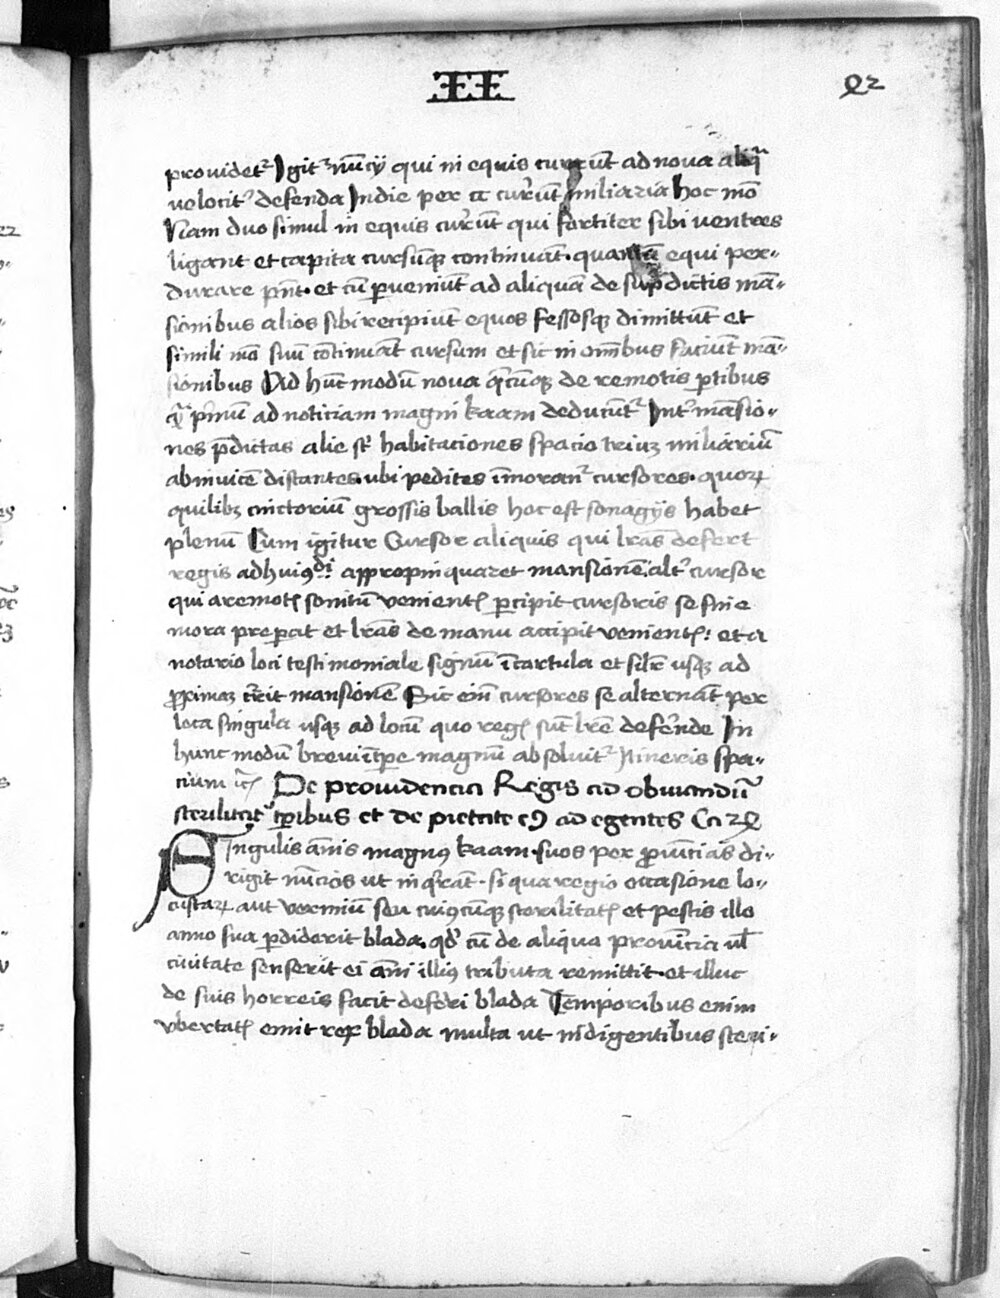 II
82
prouidet᷑ Igit᷑ nūcij qui in equis currūt ad noua aliq̄
uelocit᷑ defenda Indie per cc currūt miliaria hoc mō
Nam duo simul in equis currūt qui fortiter sibi uentres
ligant et capita cursūq; continuāt. quantū equi per-
durare pn̄t. et cū ꝑueniūt ad aliquā de sup̄dictis mā-
sionibus alios sibi recipiūt equos fessosq; dimittūt et
simili mō suū cōtinuāt cursum et sic in om̄ibus faciūt mā-
sionibus Ad hūc modū noua q̄cūq; de remotis ꝑtibus
ad noticiam magni kaam deducūt᷑ Int᷑ māsio-
nes p̄dictas alie st᷑ habitaciones spacio triuȝ miliariū
abinuicē distantes. ubi pedites īmoran᷑ cursores. quoꝝ
quilibȝ cinctoriū grossis ballis hoc est sonagijs habet
plenū Cum igitur Cursor aliquis qui lr̄as defert
regis ad huiꝰdi appropinquaret mansionē. alt᷑ cursor
qui a remotꝭ sonitū uenientꝭ ꝑcipit cursoris se sine
mora preparat et lr̄as de manu accipit uenientꝭ: et a
notario loci testimoniale signū ī cartula et silr̄ usq; ad
ꝓximaȝ currit mansionē Sic eni᷑ cursores se alternāt per
loca singula usq; ad locū quo regꝭ sūt lr̄e deferende In
hunc modū breui tp̄e magnū absoluit᷑ Itineris spa-
cium
De prouidencia Regis ad obuiandū
sterilitatꝭ tp̄ibus et de pietate eꝰ ad egentes Ca 28
Singulis ānis magnꝰ kaam. suos per ꝓuincias di-
rigit nūcios ut inq̄rāt. si qua regio occasione lo-
custaꝝ aut vermiū seu cuiꝰcūq; sterilitatꝭ et pestis illo
anno sua ꝑdiderit blada. qd᷑ cū de aliqua prouincia ul̄
ciuitate senserit ei āni illiꝰ tributa remittit. et illuc
de suis horreis facit deferri blada Temporibus enim
vbertatꝭ emit rex blada multa ut indigentibus steri-